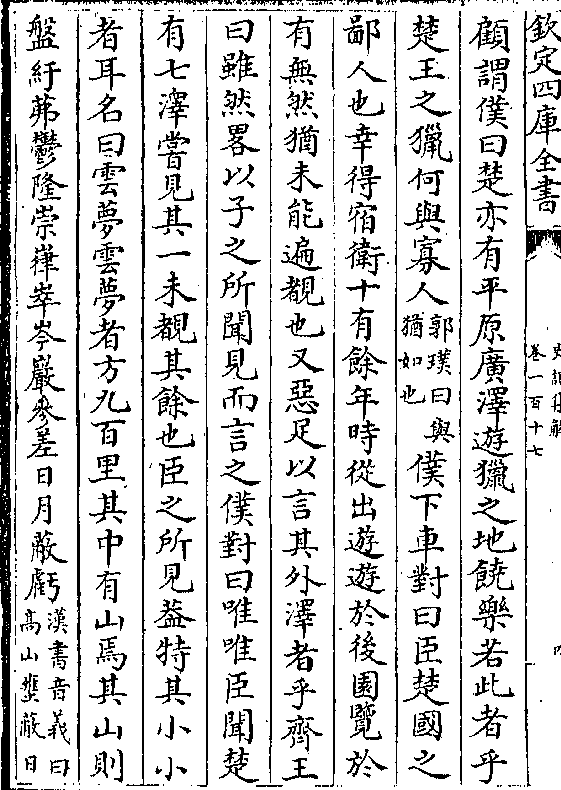 欽定四庫全書
史記集解
卷一百十七
四
顧謂僕曰楚亦有平原廣澤遊獵之地饒樂若此者乎
楚王之獵何與寡人郭璞曰與猶如也僕下車對曰臣楚國之
鄙人也幸得宿衛十有餘年時從出遊遊於後園覽於
有無然猶未能遍覩也又惡足以言其外澤者乎齊王
曰雖然畧以子之所聞見而言之僕對曰唯唯臣聞楚
有七澤嘗見其一未覩其餘也臣之所見葢特其小小
者耳名曰雲夢雲夢者方九百里其中有山焉其山則
盤紆茀鬱隆崇嵂崒岑巖參差日月蔽虧漢書音義曰高山壅蔽日